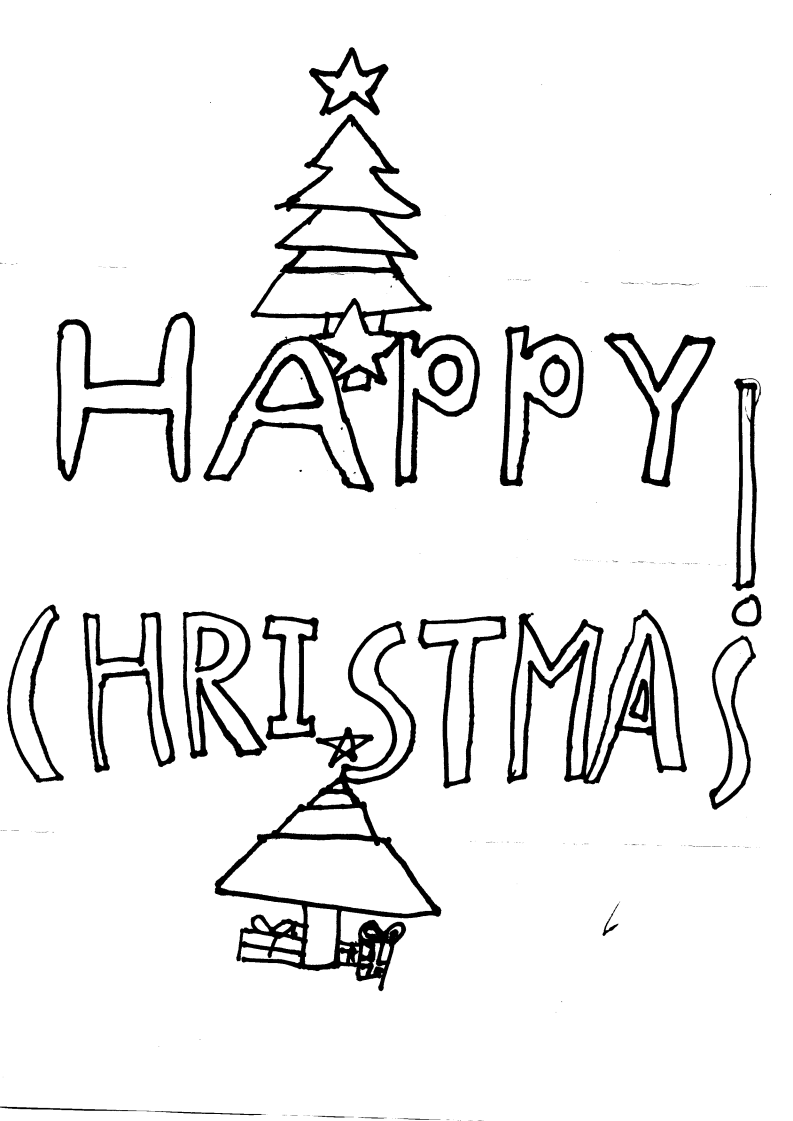 HAPPY!
CHRISTMAS